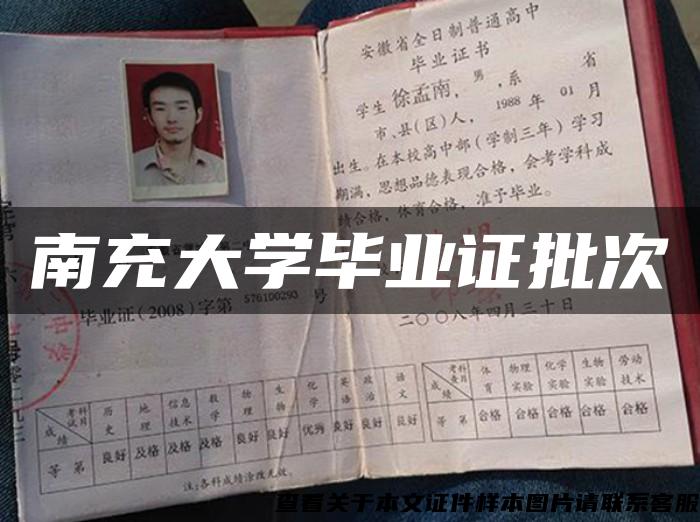 安徽省全日制普通高中
毕业证书
学生 徐孟南，男，系 省
市、县（区）人，1988 年 01 月
出生。在本校高中部（学制三年）学习
期满，思想品德表现合格，会考学科成
绩合格，体育合格，准予毕业。
南充大学毕业证批次
毕业证（2008）字第 576100293 号
二〇〇八年四月三十日
考试科目 历史 地理 信息技术 数学 物理 生物 化学 英语 政治 语文
成绩
等第 良好 及格 及格 及格 良好 良好 优秀 良好 良好 良好
注：各科成绩涂改无效。
考查科目 体育 物理实验 化学实验 生物实验 劳动技术
成绩
等第 合格 合格 合格 合格 合格
查看关于本文证件样本图片请联系客服